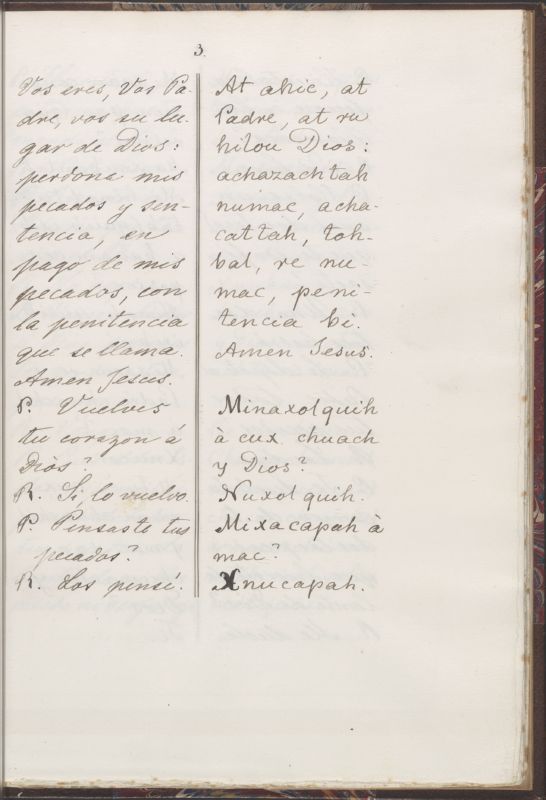 3
Vos eres, Vos Pa-
dre, vos su lu-
gar de Dios:
perdona mis
pecados y sen-
tencia, en
pago de mis
pecados, con
la penitencia
que se llama.
Amen Jesus.
P. Vuelves
tu corazon á
Dios?
R. Si, lo vuelvo.
P. Pensaste tus
pecados?
R. Los pensé.
At ahic, at
Padre, at ru
hilou Dios:
achazachtah
numac, acha-
cattah, toh-
bal, re nu-
mac, peni-
tencia bi.
Amen Jesus.
Minaxolquih
à cux chuach
y Dios?
Nuxolquih.
Mixacapah à
mac?
Xnucapah.